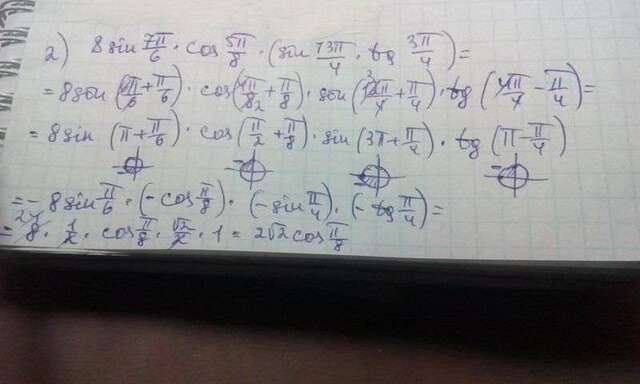 2) 8 sin 7π/6 · cos 5π/8 · (sin 13π/4 · tg 3π/4) =
= 8 sin (6π/6 + π/6) · cos (4π/8 + π/8) · sin (12π/4 + π/4) · tg (4π/4 − π/4) =
= 8 sin (π + π/6) · cos (π/2 + π/8) · sin (3π + π/4) · tg (π − π/4)
= − 8 sin π/6 · (− cos π/8) · (− sin π/4) · (− tg π/4) =
= 8 · 1/2 · cos π/8 · √2/2 · 1 = 2√2 cos π/8